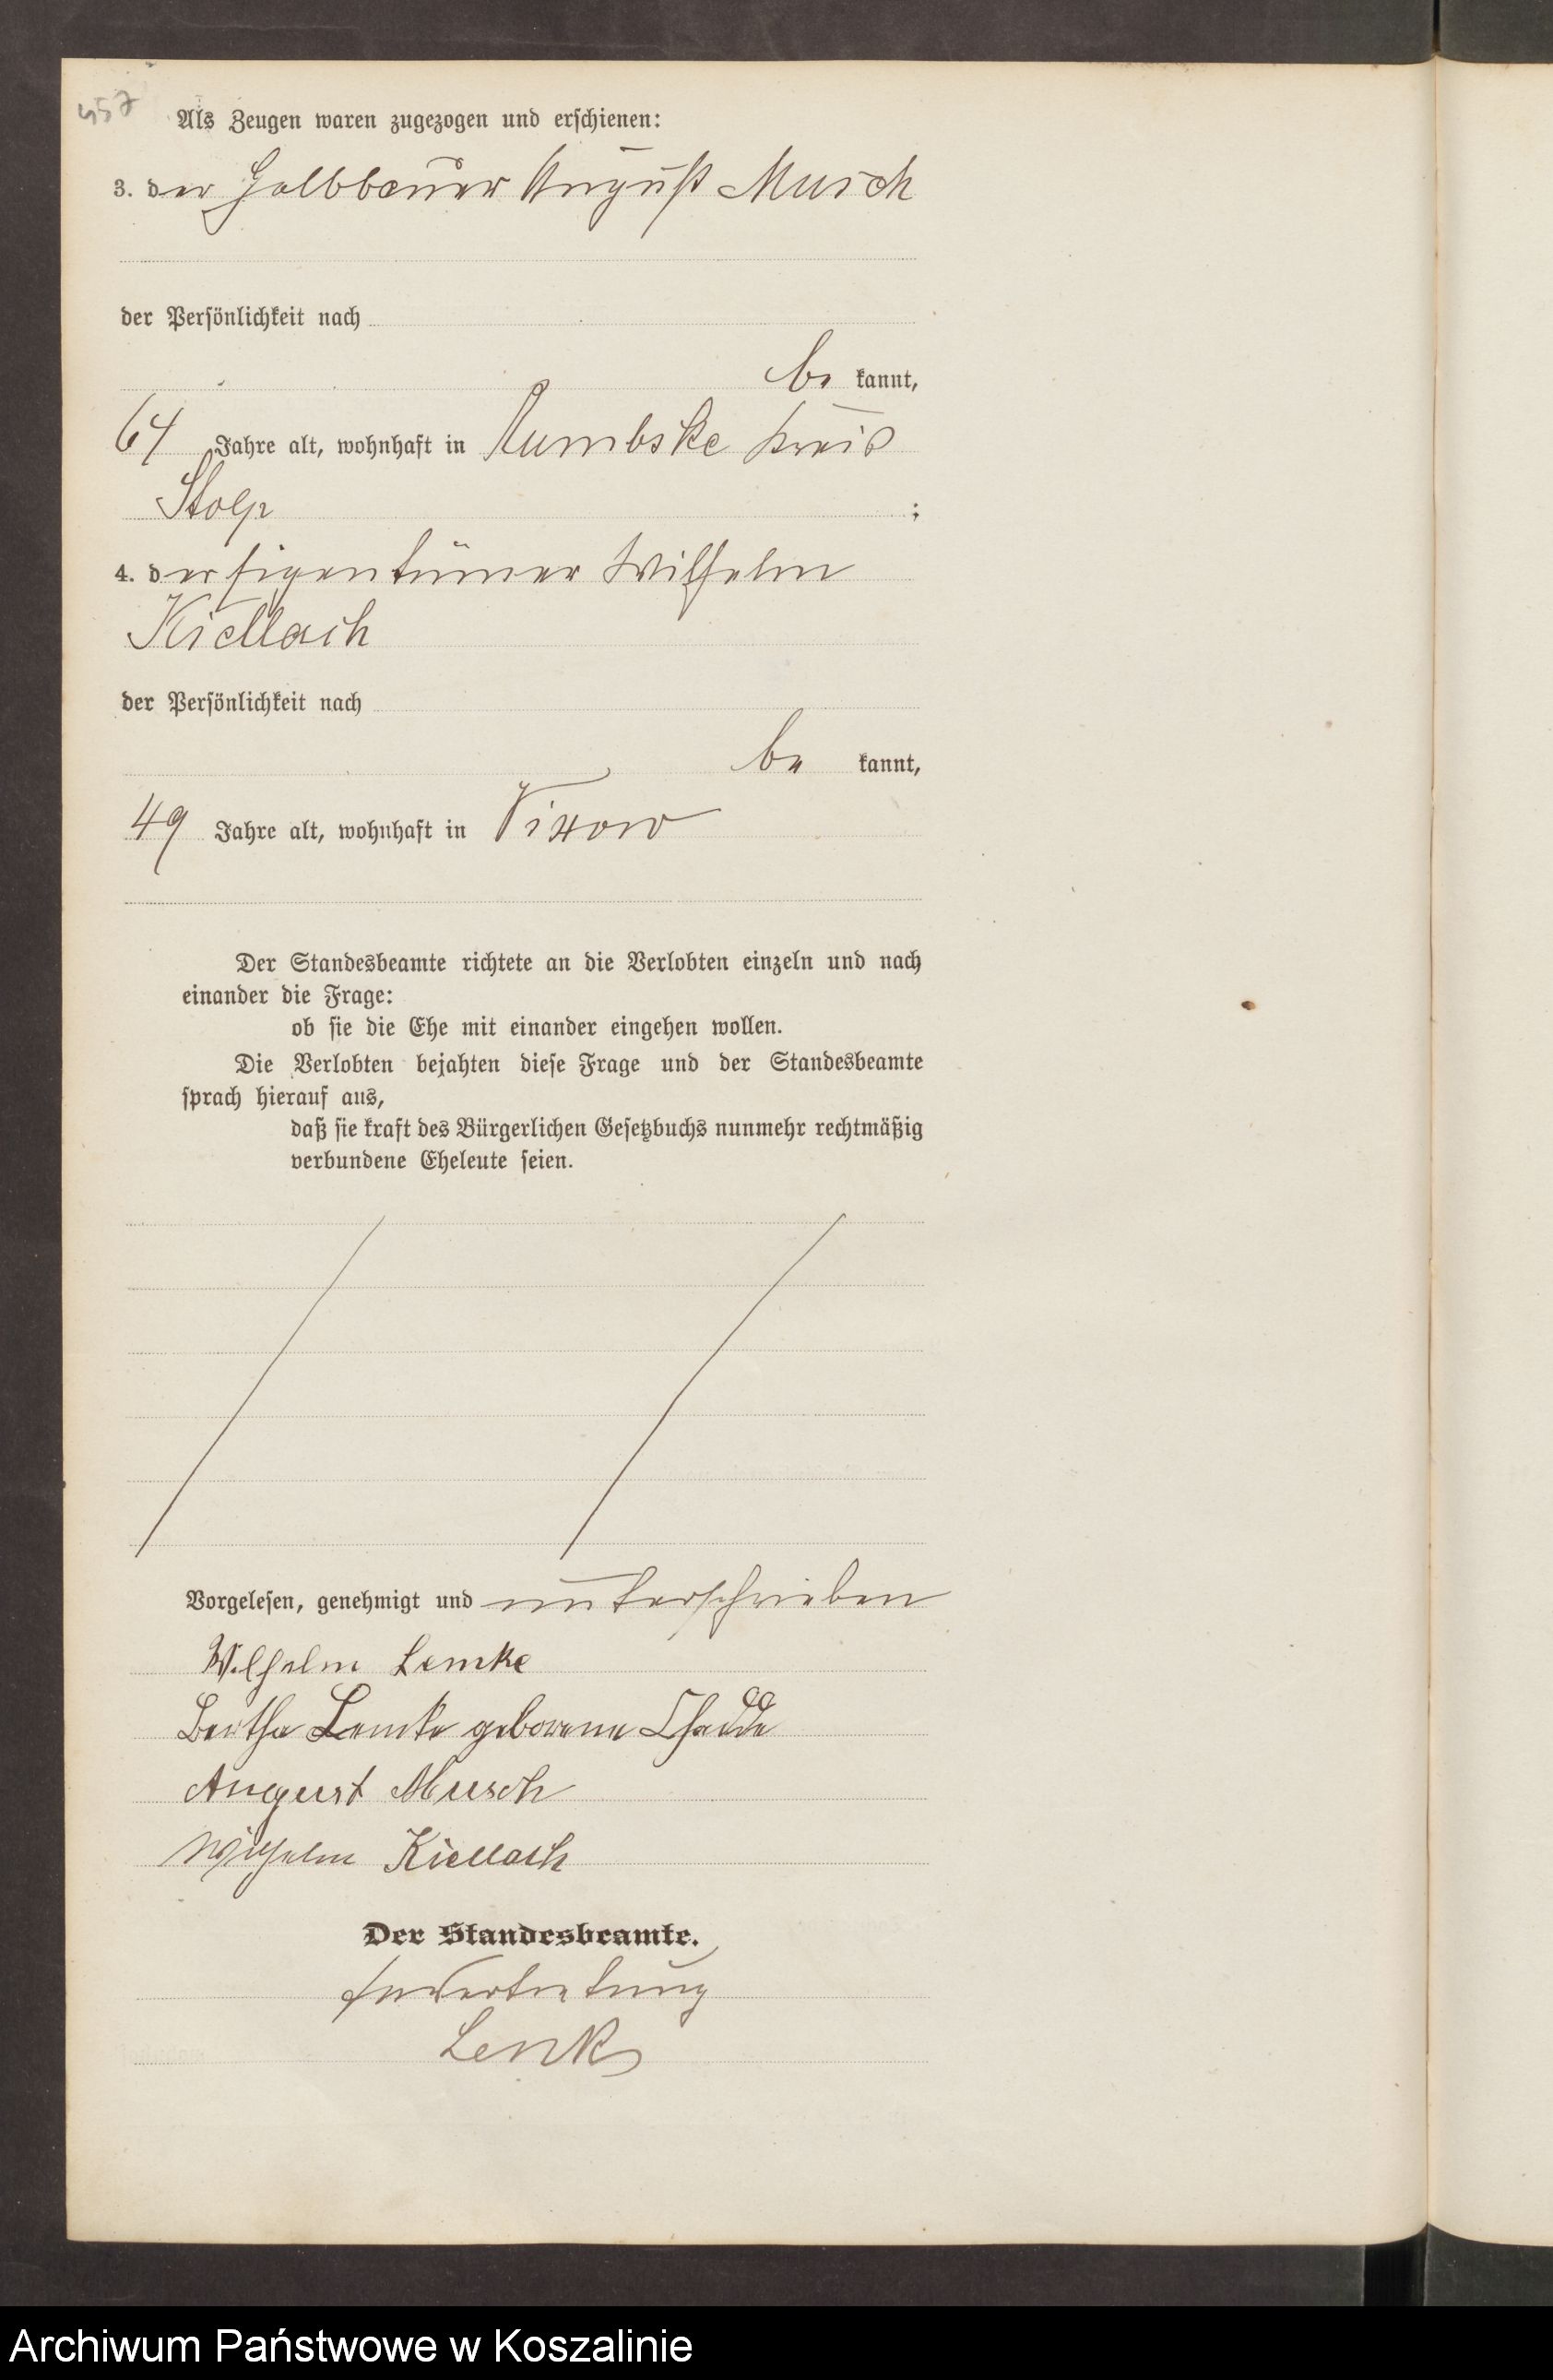 457
Als Zeugen waren zugezogen und erschienen:
3. der Halbbauer August Musch
der Persönlichkeit nach
be kannt,
64 Jahre alt, wohnhaft in Rumbske Kreis
Stolp ;
4. der Eigentümer Wilhelm
Kiellach
der Persönlichkeit nach
be kannt,
49 Jahre alt, wohnhaft in Vixow
Der Standesbeamte richtete an die Verlobten einzeln und nach
einander die Frage:
ob sie die Ehe mit einander eingehen wollen.
Die Verlobten bejahten diese Frage und der Standesbeamte
sprach hierauf aus,
daß sie kraft des Bürgerlichen Gesetzbuchs nunmehr rechtmäßig
verbundene Eheleute seien.
Vorgelesen, genehmigt und unterschrieben
Wilhelm Lemke
Bertha Lemke geborene Schadde
August Musch
Wilhelm Kiellach
Der Standesbeamte.
In Vertretung
Lenk
Archiwum Państwowe w Koszalinie